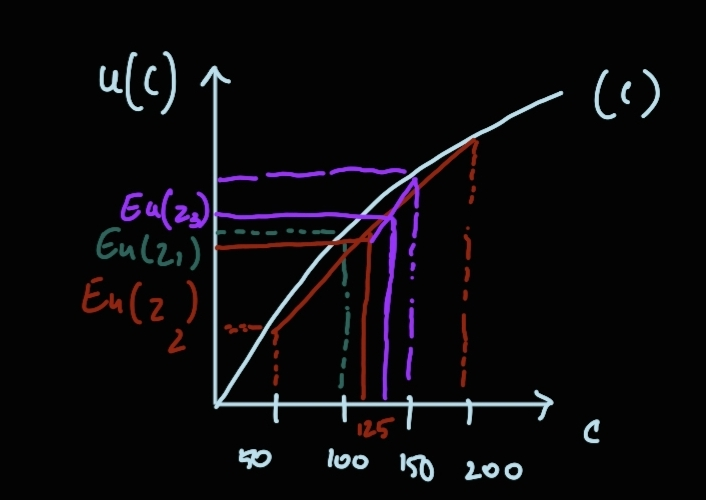 u(c)
(c)
Eu(z₃)
Eu(z₁)
Eu(z₂)
125
c
50
100
150
200